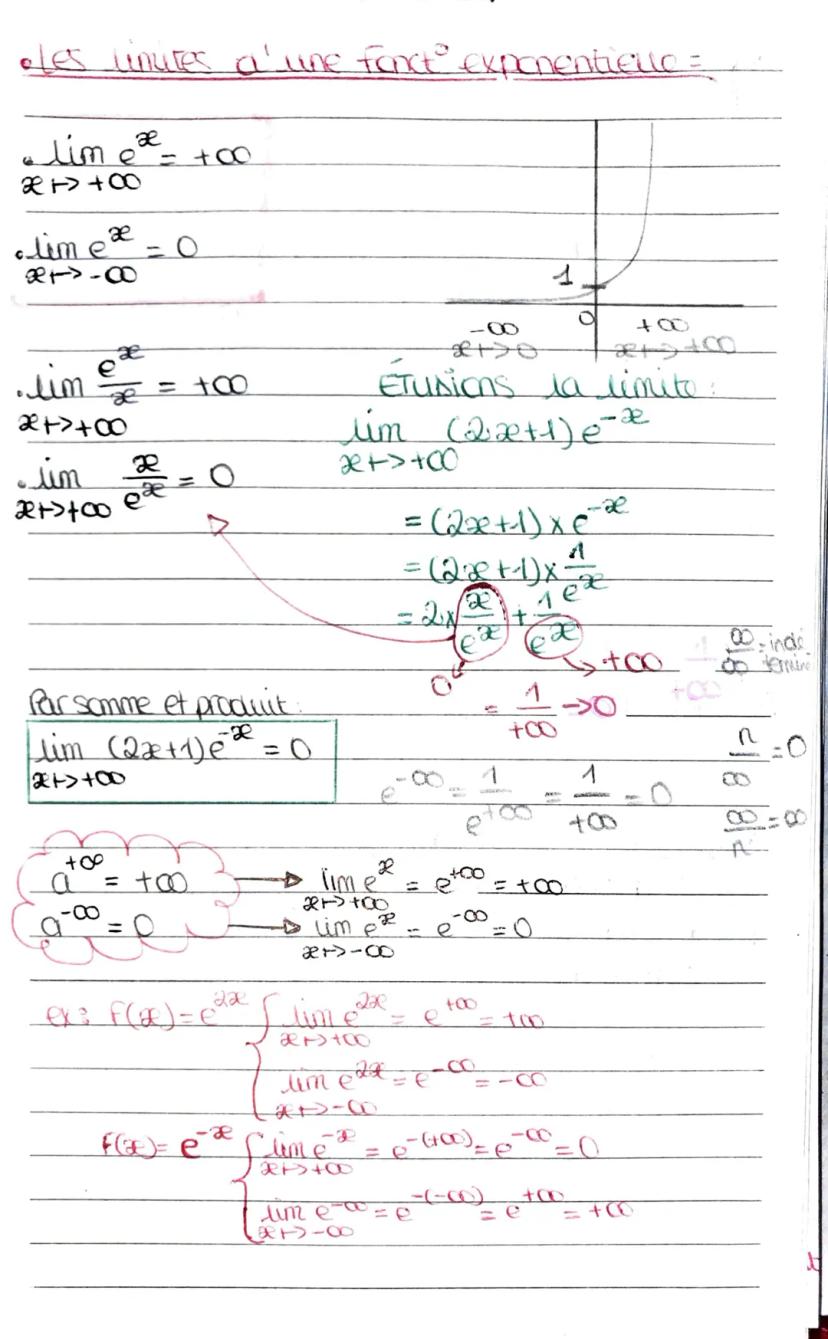 •Les limites d'une fonct° exponentielle =
• lim e^x = +∞
x↦+∞
• lim e^x = 0
x↦-∞
1
0
-∞ +∞
x↦0 x↦+∞
• lim e^x/x = +∞
x↦+∞
• lim x/e^x = 0
x↦+∞
Étudions la limite :
lim (2x+1)e^-x
x↦+∞
= (2x+1) × e^-x
= (2x+1) × 1/e^x
= 2 × x/e^x + 1/e^x
0 +∞
= 1/+∞ → 0
1/+∞
∞/∞ = indé
terminé
Par somme et produit :
lim (2x+1)e^-x = 0
x↦+∞
e^-∞ = 1/e^+∞ = 1/+∞ = 0
n/∞ = 0
∞/n = ∞
a^+∞ = +∞ → lim e^x = e^+∞ = +∞
x↦+∞
a^-∞ = 0 → lim e^x = e^-∞ = 0
x↦-∞
ex : f(x) = e^2x { lim e^2x = e^+∞ = +∞
x↦+∞
lim e^2x = e^-∞ = -∞
x↦-∞
f(x) = e^-x { lim e^-x = e^-(+∞) = e^-∞ = 0
x↦+∞
lim e^-∞ = e^-(-∞) = e^+∞ = +∞
x↦-∞